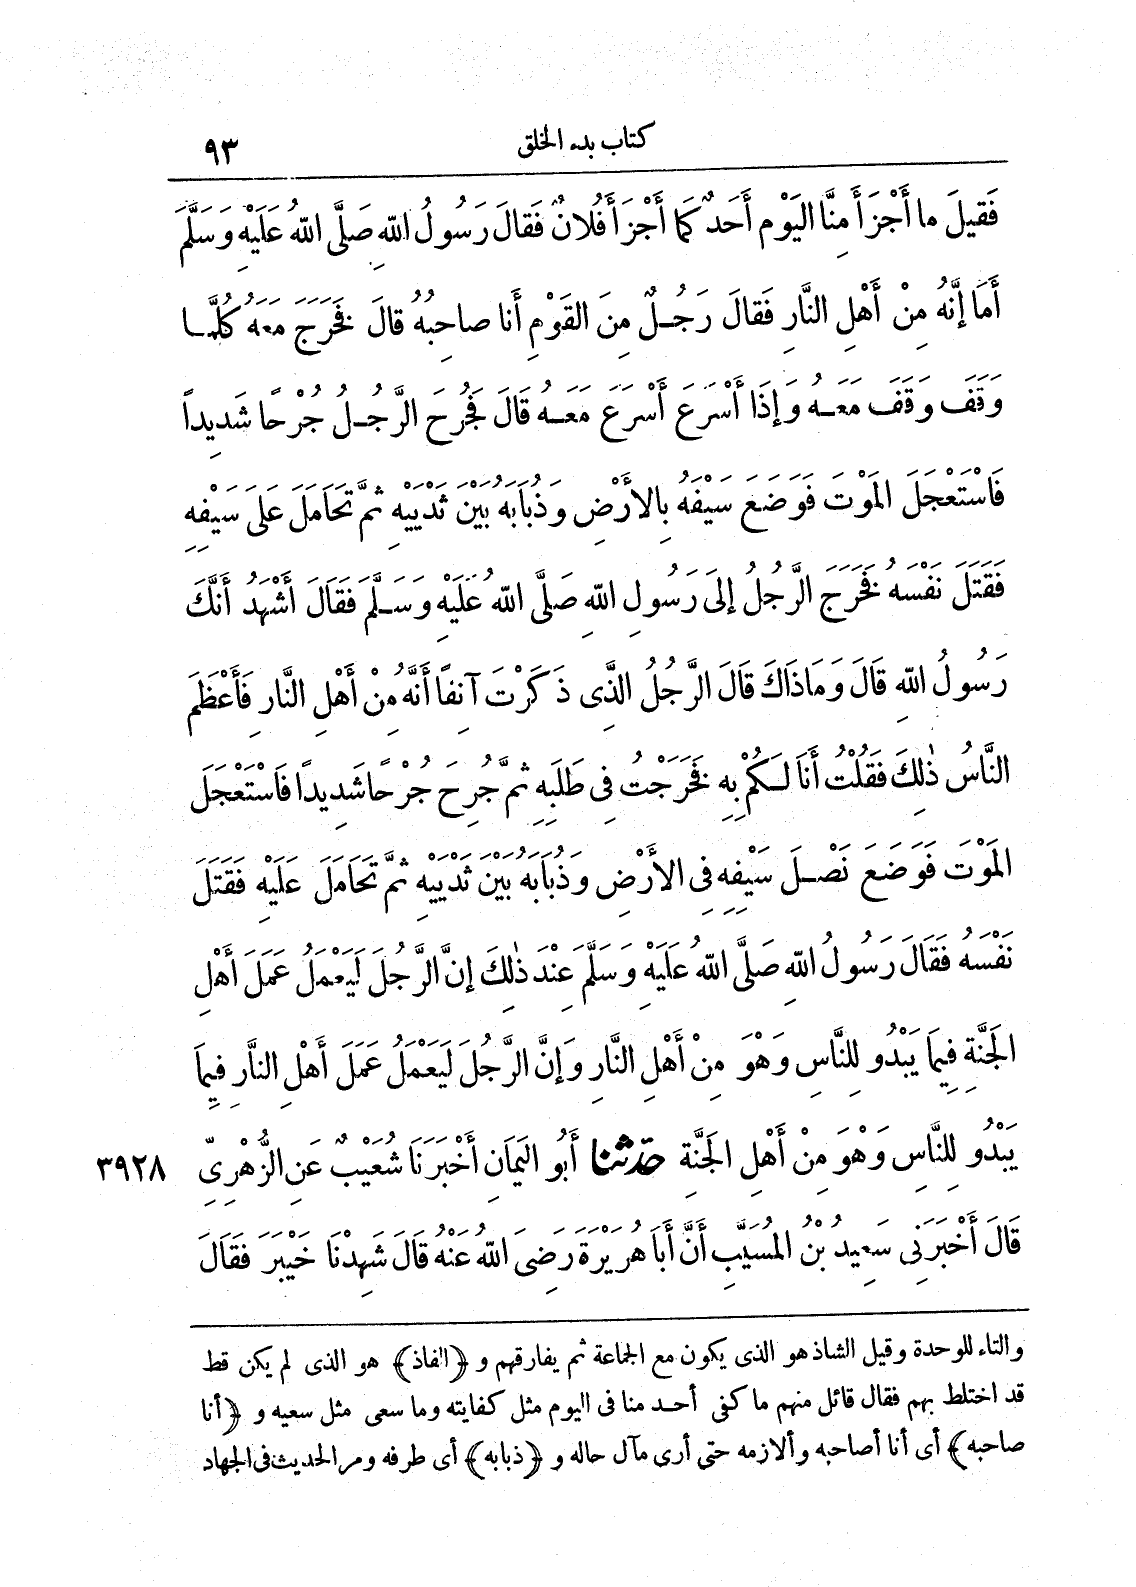 كتاب بدء الخلق ٩٣
فَقِيلَ ما أَجْزَأَ مِنَّا اليَوْم أَحَدٌ كَمَا أَجْزَأَ فُلانٌ فَقالَ رَسُولُ اللّهِ صَلَّى اللّهُ عَلَيْهِ وَسَلَّمَ
أَمَا إِنَّهُ مِنْ أَهْلِ النَّارِ فَقالَ رَجُـلٌ مِنَ القَوْمِ أَنا صاحِبُهُ قالَ فَخَرَجَ مَعَهُ كُلَّمَـا
وَقَفَ وَقَفَ مَعَـهُ وَإِذَا أَسْرَعَ أَسْرَعَ مَعَـهُ قَالَ فَجُرِحَ الرَّجُـلُ جُرْحًا شَدِيداً
فَاسْتَعْجَلَ المَوْتَ فَوَضَعَ سَيْفَهُ بِالأَرْضِ وَذُبَابَهُ بَيْنَ ثَدْيَيْهِ ثُمَّ تَحَامَلَ عَلَى سَيْفِهِ
فَقَتَلَ نَفْسَهُ فَخَرَجَ الرَّجُلُ إِلَى رَسُولِ اللّهِ صَلَّى اللّهُ عَلَيْهِ وَسَـلَّمَ فَقَالَ أَشْهَدُ أَنَّكَ
رَسُولُ اللّهِ قَالَ وَمَاذَاكَ قَالَ الرَّجُلُ الَّذِى ذَكَرْتَ آنِفًا أَنَّهُ مِنْ أَهْلِ النَّارِ فَأَعْظَمَ
النَّاسُ ذٰلِكَ فَقُلْتُ أَنَا لَـكُمْ بِهِ فَخَرَجْتُ فِى طَلَبِهِ ثُمَّ جُرِحَ جُرْحًا شَدِيدًا فَاسْتَعْجَلَ
المَوْتَ فَوَضَعَ نَصْـلَ سَيْفِهِ فِى الأَرْضِ وَذُبَابَهُ بَيْنَ ثَدْيَيْهِ ثُمَّ تَحَامَلَ عَلَيْهِ فَقَتَلَ
نَفْسَهُ فَقَالَ رَسُولُ اللّهِ صَلَّى اللّهُ عَلَيْهِ وَسَلَّمَ عِنْدَ ذٰلِكَ إِنَّ الرَّجُلَ لَيَعْمَلُ عَمَلَ أَهْلِ
الجَنَّةِ فِيمَا يَبْدُو لِلنَّاسِ وَهْوَ مِنْ أَهْلِ النَّارِ وَإِنَّ الرَّجُلَ لَيَعْمَلُ عَمَلَ أَهْلِ النَّارِ فِيمَا
يَبْدُو لِلنَّاسِ وَهْوَ مِنْ أَهْلِ الجَنَّةِ حَدَّثَنَا أَبُو اليَمَانِ أَخْبَرَنَا شُعَيْبٌ عَنِ الزُّهْرِىِّ ٣٩٢٨
قَالَ أَخْبَرَنِى سَعِيدُ بْنُ المُسَيَّبِ أَنَّ أَبَا هُرَيْرَةَ رَضِىَ اللّهُ عَنْهُ قَالَ شَهِدْنَا خَيْبَرَ فَقَالَ
والتاء للوحدة وقيل الشاذ هو الذى يكون مع الجماعة ثم يفارقهم و ﴿الفاذ﴾ هو الذى لم يكن قط
قد اختلط بهم فقال قائل منهم ما كفى أحـد منا فى اليوم مثل كفايته وما سعى مثل سعيه و ﴿أنا
صاحبه﴾ أى أنا أصاحبه وألازمه حتى أرى مآل حاله و ﴿ذبابه﴾ أى طرفه ومر الحديث فى الجهاد